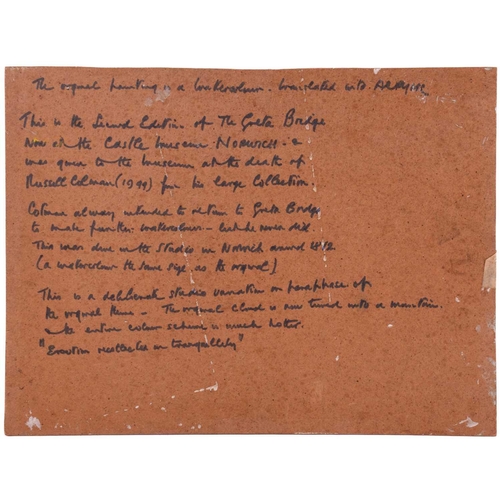 The orginal painting is a watercolour. translated into ACRYLIC
This is the Second Edition of The Greta Bridge
Now at the Castle Museum NORWICH - &
was given to the museum at the death of
Russell Colman (1944) from his large Collection.
Cotman always intended to return to Greta Bridge
to make further watercolours - but he never did.
This was done in the Studio in Norwich around 1812
(a watercolour the same size as the orginal)
This is a deliberate studio variation or paraphrase of
the orginal theme - The orginal cloud is now turned into a mountain.
the entire colour scheme is much hotter.
"Emotion recollected in tranquillity"